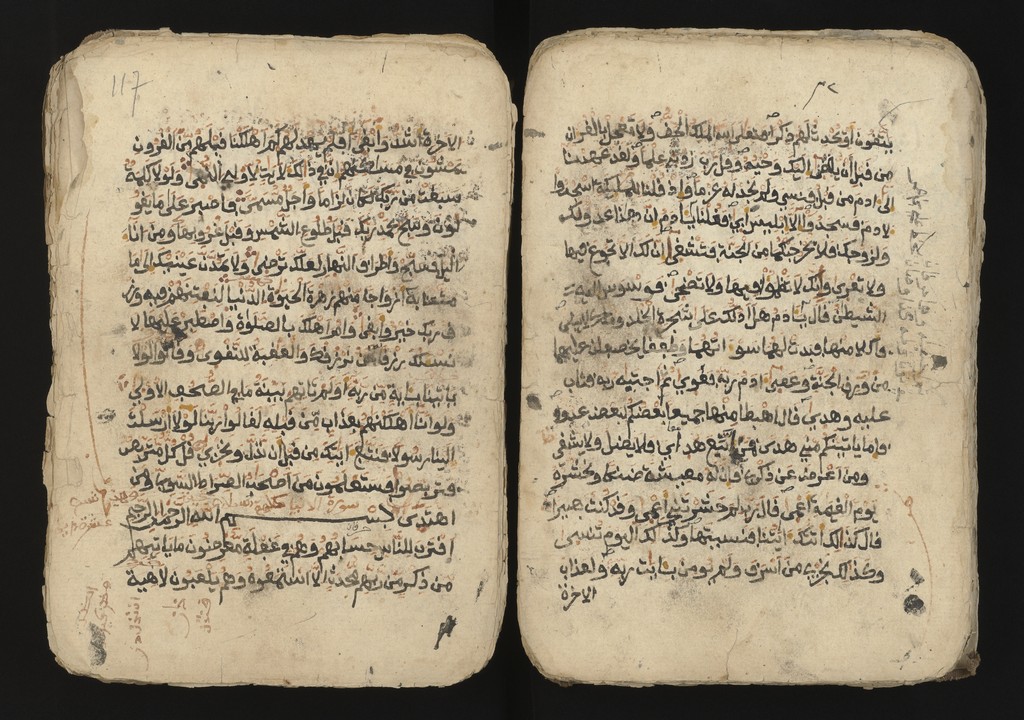 ٣٢
يتقون او يحدث لهم ذكرا فتعلى الله الملك الحق ولا تعجل بالقران
من قبل ان يقضى اليك وحيه وقل رب زدني علما ولقد عهدنا
الى ادم من قبل فنسى ولم نجد له عزما واذ قلنا للمليكة اسجدوا
لادم فسجدوا الا ابليس ابى فقلنا يادم ان هذا عدو لك
ولزوجك فلا يخرجنكما من الجنة فتشقى ان لك الا تجوع فيها
ولا تعرى وانك لا تظموا فيها ولا تضحى فوسوس اليه
الشيطن قال يادم هل ادلك على شجرة الخلد وملك لا يبلى
فاكلا منها فبدت لهما سوءاتهما وطفقا يخصفان عليهما
من ورق الجنة وعصى ادم ربه فغوى ثم اجتبيه ربه فتاب
عليه وهدى قال اهبطا منها جميعا بعضكم لبعض عدو
فاما ياتينكم مني هدى فمن اتبع هداي فلا يضل ولا يشقى
ومن اعرض عن ذكري فان له معيشة ضنكا ونحشره
يوم القيمة اعمى قال رب لم حشرتني اعمى وقد كنت بصيرا
قال كذلك اتتك ايتنا فنسيتها وكذلك اليوم تنسى
وكذلك نجزي من اسرف ولم يومن بايت ربه ولعذاب
الاخرة
117
الاخرة اشد وابقى افلم يهد لهم كم اهلكنا قبلهم من القرون
يمشون في مسكنهم ان في ذلك لايت لاولي النهى ولولا كلمة
سبقت من ربك لكان لزاما واجل مسمى فاصبر على ما يقو
لون وسبح بحمد ربك قبل طلوع الشمس وقبل غروبها ومن اناء
اليل فسبح واطراف النهار لعلك ترضى ولا تمدن عينيك الى ما
متعنا به ازوجا منهم زهرة الحيوة الدنيا لنفتنهم فيه ورز
ق ربك خير وابقى وامر اهلك بالصلوة واصطبر عليها لا
نسلك رزقا نحن نرزقك والعقبة للتقوى وقالوا لولا
ياتينا باية من ربه اولم تاتهم بينة ما في الصحف الاولى
ولو انا اهلكنهم بعذاب من قبله لقالوا ربنا لولا ارسلت
الينا رسولا فنتبع ايتك من قبل ان نذل ونخزى قل كل متربص
فتربصوا فستعلمون من اصحب الصراط السوي ومن
اهتدى بسم الله الرحمن الرحيم
اقترب للناس حسابهم وهم في غفلة معرضون ما ياتيهم
من ذكر من ربهم محدث الا استمعوه وهم يلعبون لاهية